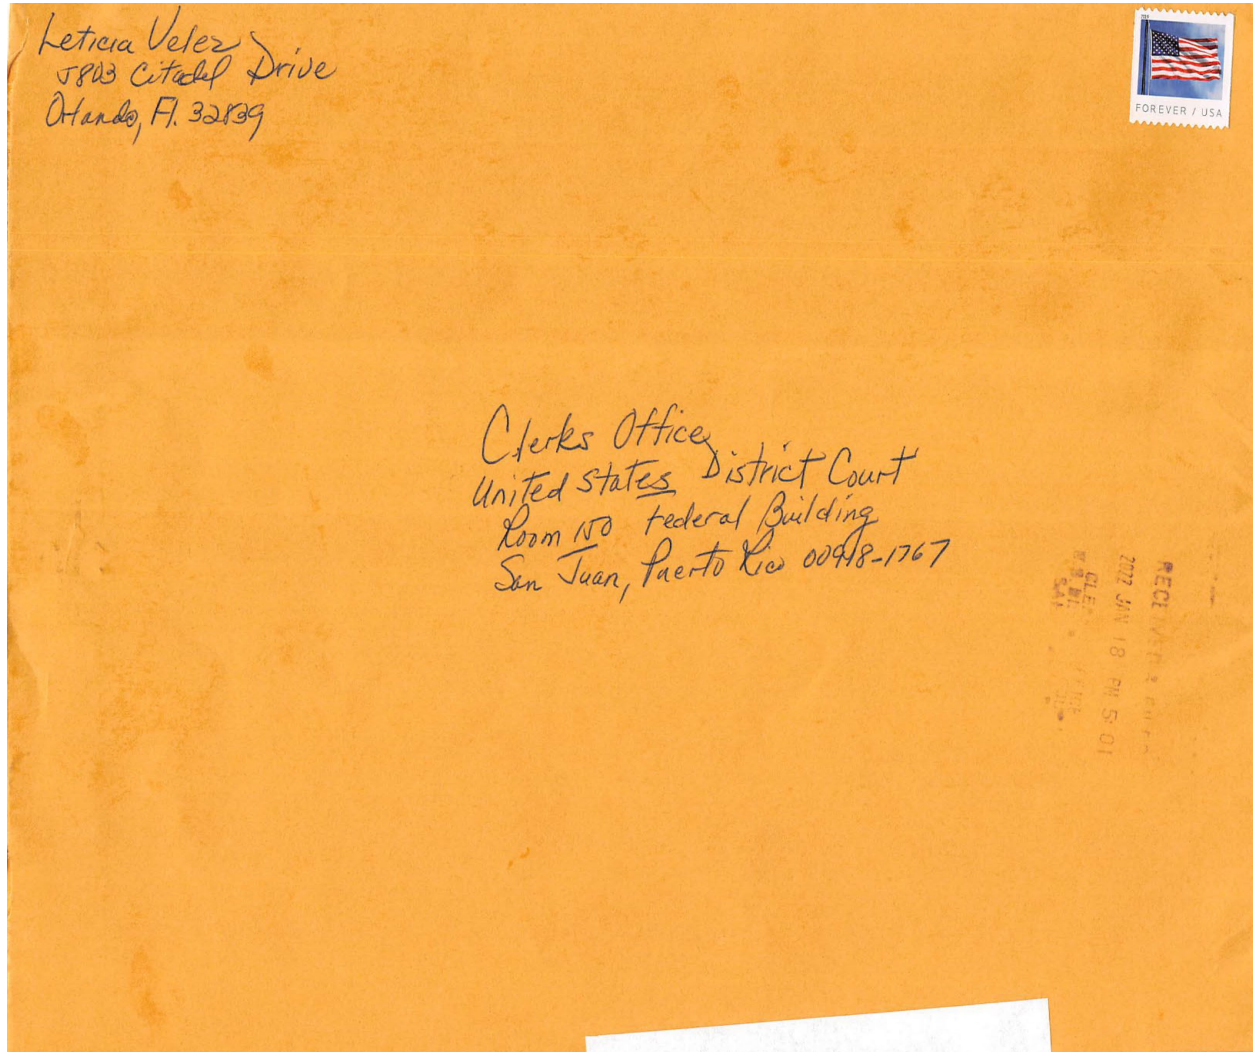 Leticia Velez
5803 Citadel Drive
Orlando, Fl. 32839
FOREVER / USA
Clerks Office
United States District Court
Room 150 Federal Building
San Juan, Puerto Rico 00918-1767
2022 JAN 18 PM 5:01